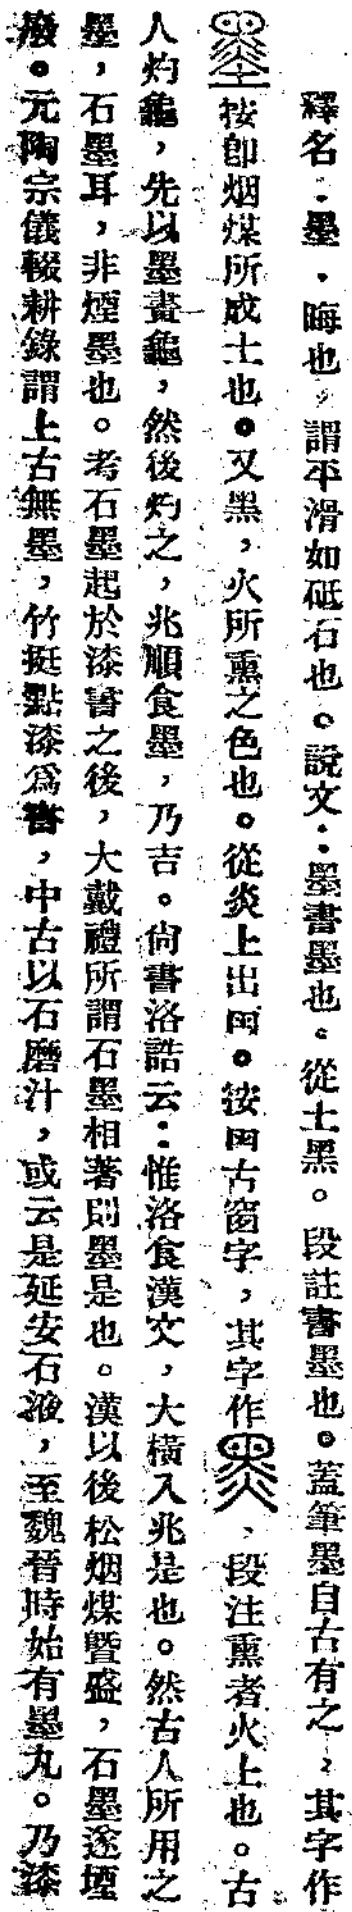 釋名：墨，晦也，謂平滑如砥石也。說文：墨書墨也。從土黑。段註書墨也。蓋筆墨自古有之，其字作
按卽烟煤所成土也。又黑，火所熏之色也。從炎上出囪。按囪古窗字，其字作，段注熏者火上也。古
人灼龜，先以墨畫龜，然後灼之，兆順食墨，乃吉。尙書洛誥云：惟洛食漢文，大橫入兆是也。然古人所用之
墨，石墨耳，非煙墨也。考石墨起於漆書之後，大戴禮所謂石墨相著則墨是也。漢以後松烟煤暨盛，石墨遂堙
廢。元陶宗儀輟耕錄謂上古無墨，竹挺點漆爲書，中古以石磨汁，或云是延安石液，至魏晉時始有墨丸。乃漆